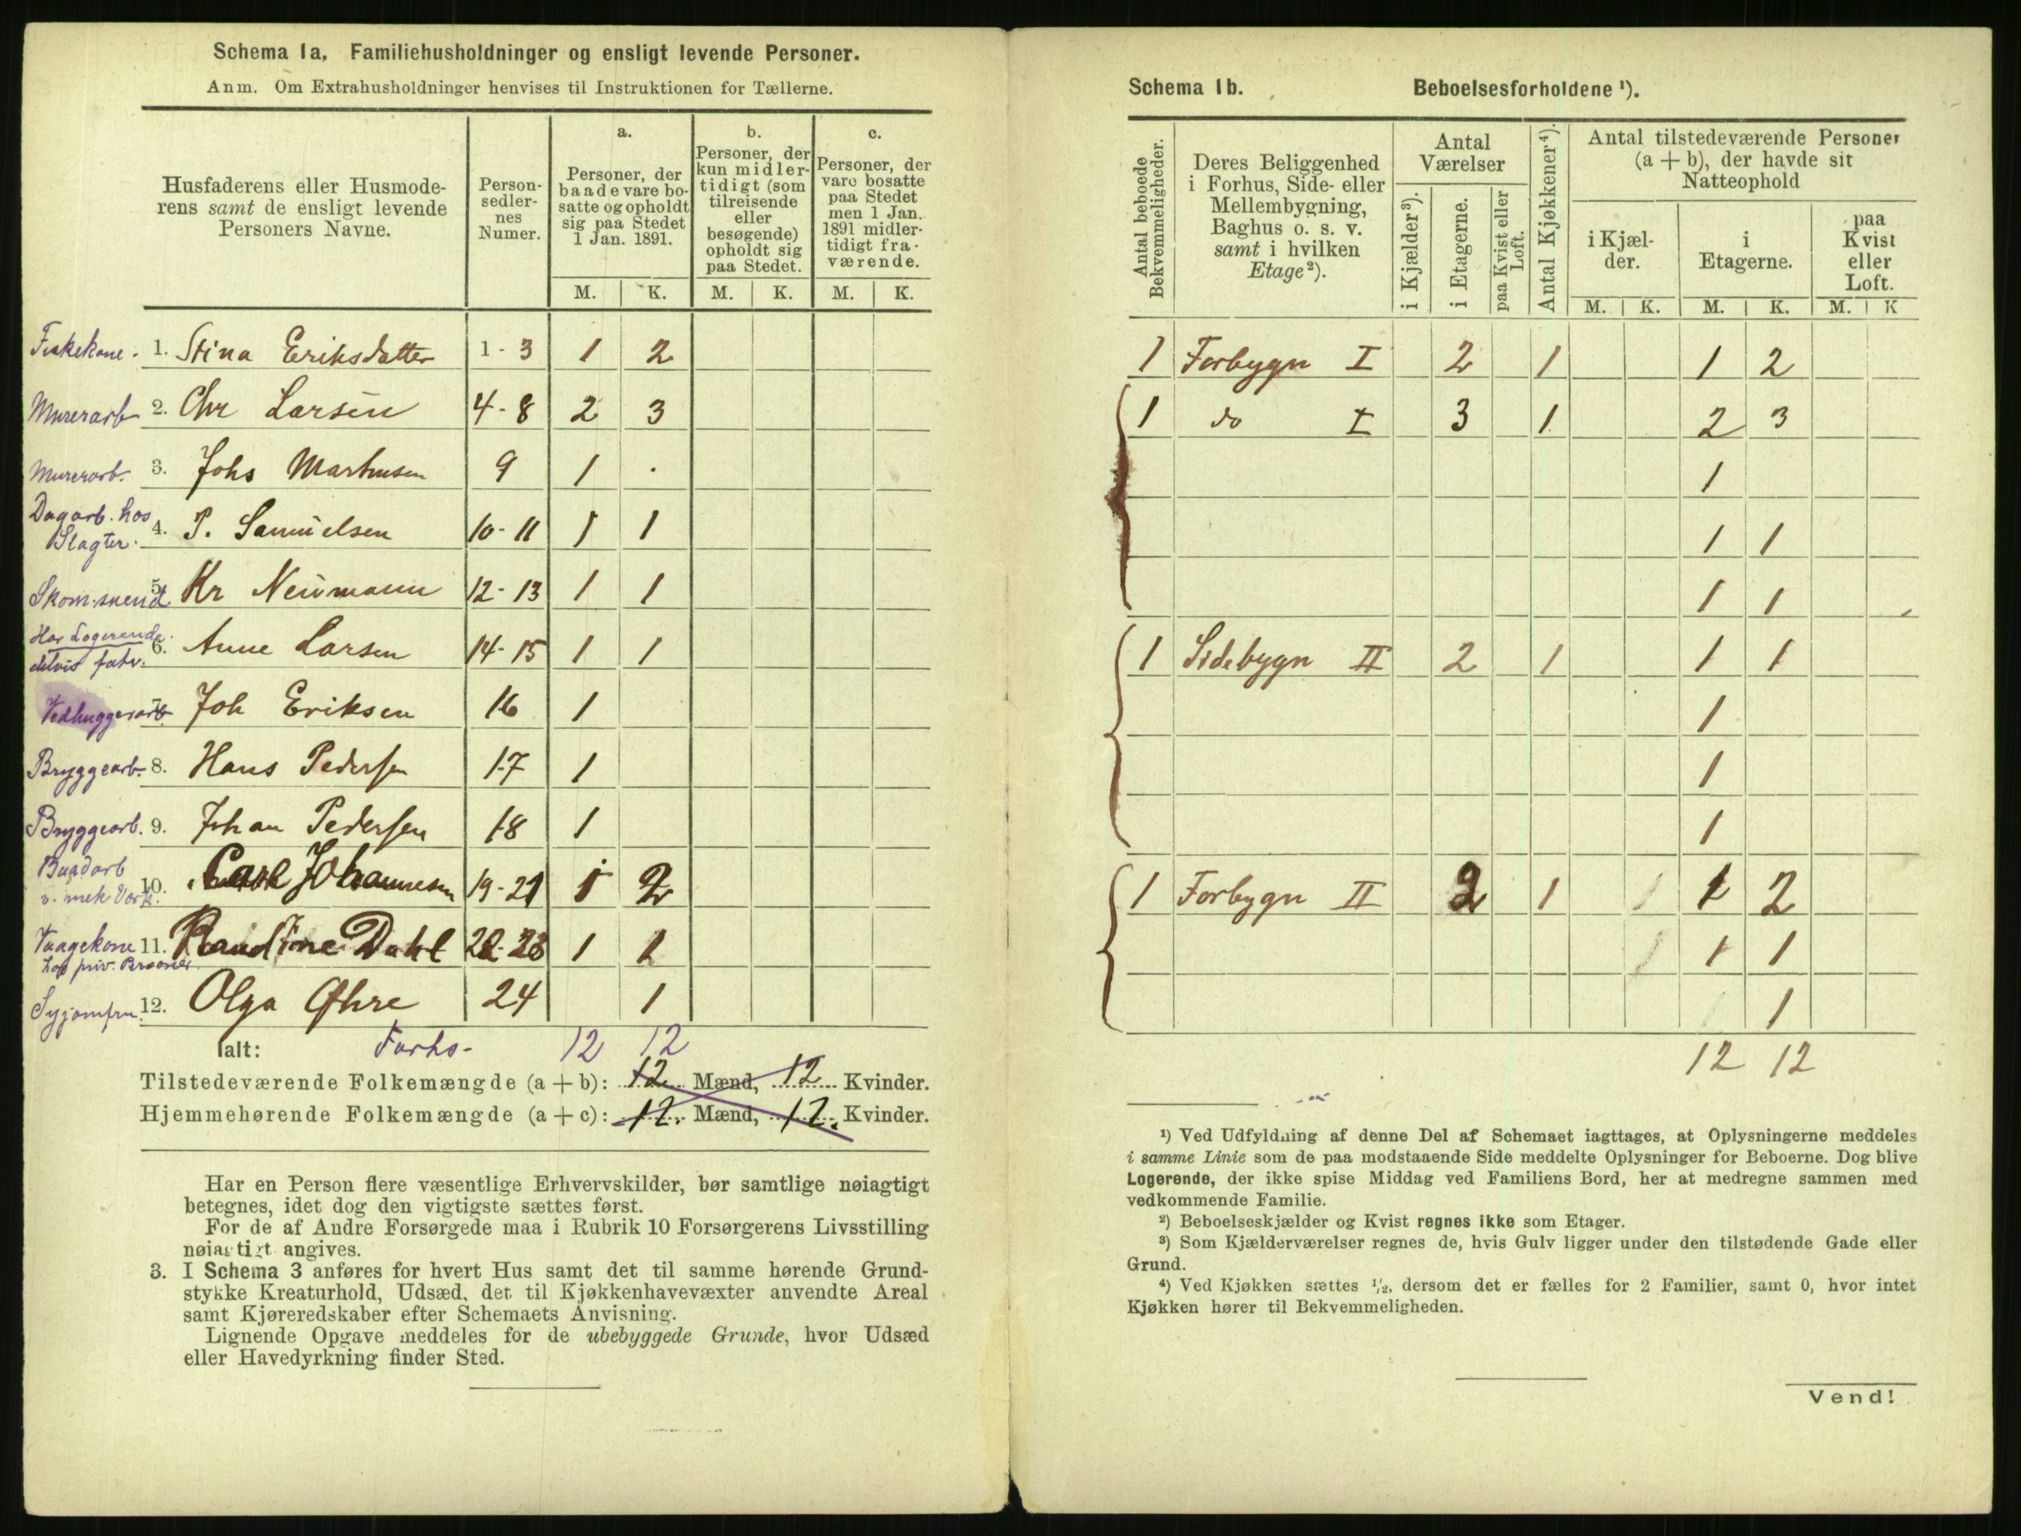 Schema 1a. Familiehusholdninger og ensligt levende Personer.
Anm. Om Extrahusholdninger henvises til Instruktionen for Tællerne.
Husfaderens eller Husmode-
rens samt de ensligt levende
Personers Navne.
Person-
sedler-
nes
Numer.
a.
Personer, der
baade vare bo-
satte og opholdt
sig paa Stedet
1 Jan. 1891.
b.
Personer, der
kun midler-
tidigt (som
tilreisende
eller
besøgende)
opholdt sig
paa Stedet.
c.
Personer, der
vare bosatte
paa Stedet
men 1 Jan.
1891 midler-
tidigt fra-
værende.
M. K. M. K. M. K.
Fiskekone. 1. Stina Eriksdatter 1-3 1 2
Murerarb 2. Chr Larsen 4-8 2 3
Murerarb. 3. Johs Martinsen 9 1 .
Dagarb. hos
Slagter. 4. P. Samuelsen 10-11 1 1
Skom.svend 5. Kr Neumann 12-13 1 1
Har Logerende.
delvis fatv. 6. Anne Larsen 14-15 1 1
Vedhuggerarb 7. Joh Eriksen 16 1
Bryggearb. 8. Hans Pedersen 17 1
Bryggearb. 9. Johan Pedersen 18 1
v. mek Værk. 10. Carl Johannesen 19-21 1 2
Vaagekone
hos priv. Personer. 11. Dahl 22-23 1 1
Syjomfru. 12. Olga Øhre 24 1
Ialt: 12 12
Tilstedeværende Folkemængde (a + b): 12 Mænd, 12 Kvinder.
Hjemmehørende Folkemængde (a + c): 12. Mænd, 12. Kvinder.
Har en Person flere væsentlige Erhvervskilder, bør samtlige nøiagtigt
betegnes, idet dog den vigtigste sættes først.
For de af Andre Forsørgede maa i Rubrik 10 Forsørgerens Livsstilling
nøiagtigt angives.
3. I Schema 3 anføres for hvert Hus samt det til samme hørende Grund-
stykke Kreaturhold, Udsæd, det til Kjøkkenhavevæxter anvendte Areal
samt Kjøreredskaber efter Schemaets Anvisning.
Lignende Opgave meddeles for de ubebyggede Grunde, hvor Udsæd
eller Havedyrkning finder Sted.
Schema 1b. Beboelsesforholdene ¹).
Antal beboede
Bekvemmeligheder.
Deres Beliggenhed
i Forhus, Side- eller
Mellembygning,
Baghus o. s. v.
samt i hvilken
Etage²).
Antal
Værelser
i Kjælder³).
i Etagerne.
paa Kvist eller
Loft.
Antal Kjøkkener⁴).
Antal tilstedeværende Personer
(a + b), der havde sit
Natteophold
i Kjæl-
der.
i
Etagerne.
paa
Kvist
eller
Loft.
M. K. M. K. M. K
1 Forbygn I 2 1 1 2
1 do I 3 1 2 3
1
1 1
1 1
1 Sidebygn II 2 1 1 1
1
1
1
1 Forbygn II 2 1 1 2
1 1
1
12 12
¹) Ved Udfyldning af denne Del af Schemaet iagttages, at Oplysningerne meddeles
i samme Linie som de paa modstaaende Side meddelte Oplysninger for Beboerne. Dog blive
Logerende, der ikke spise Middag ved Familiens Bord, her at medregne sammen med
vedkommende Familie.
²) Beboelseskjælder og Kvist regnes ikke som Etager.
³) Som Kjælderværelser regnes de, hvis Gulv ligger under den tilstødende Gade eller
Grund.
⁴) Ved Kjøkken sættes ½, dersom det er fælles for 2 Familier, samt 0, hvor intet
Kjøkken hører til Bekvemmeligheden.
Vend!